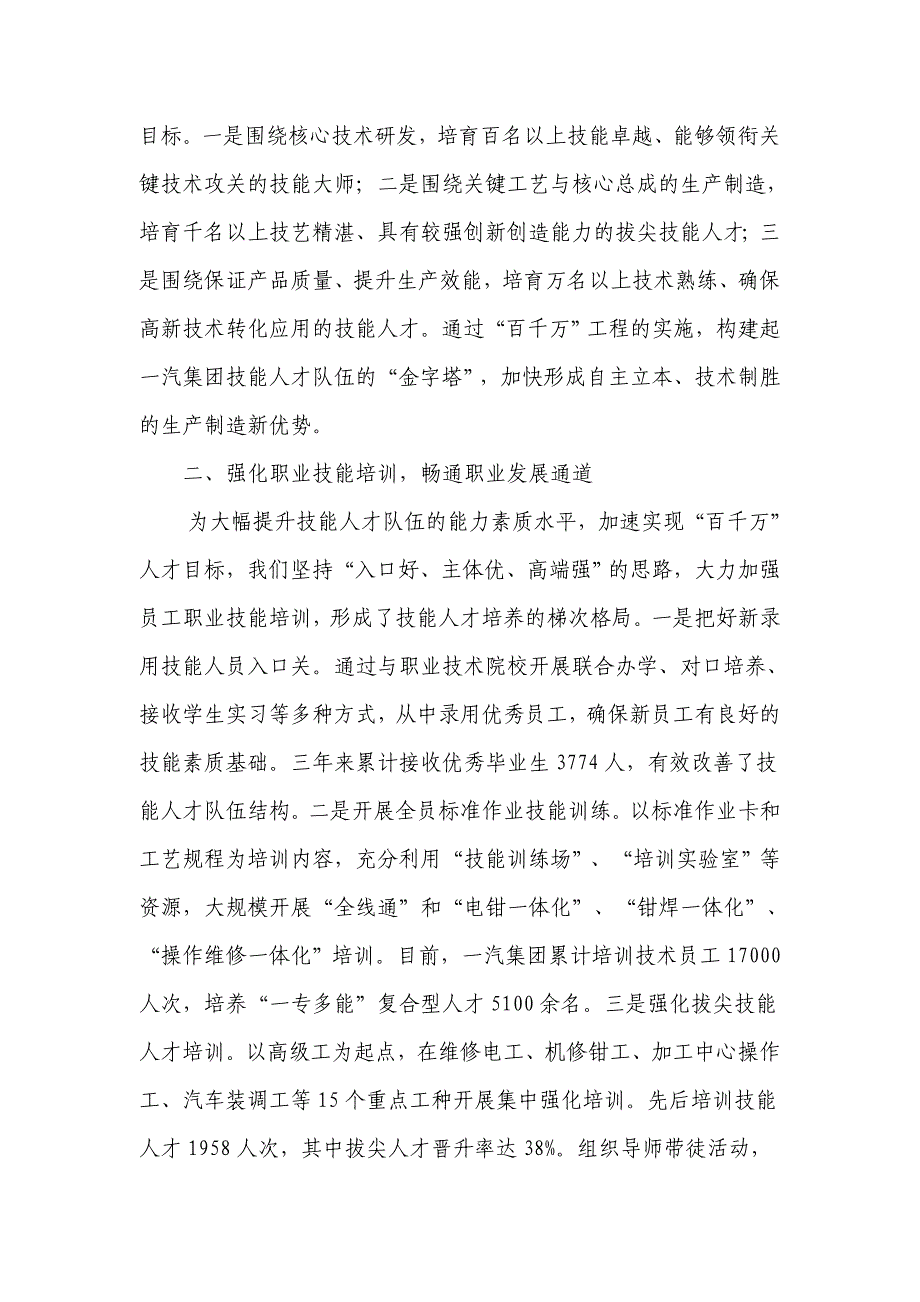 目标。一是围绕核心技术研发，培育百名以上技能卓越、能够领衔关
键技术攻关的技能大师；二是围绕关键工艺与核心总成的生产制造，
培育千名以上技艺精湛、具有较强创新创造能力的拔尖技能人才；三
是围绕保证产品质量、提升生产效能，培育万名以上技术熟练、确保
高新技术转化应用的技能人才。通过“百千万”工程的实施，构建起
一汽集团技能人才队伍的“金字塔”，加快形成自主立本、技术制胜
的生产制造新优势。
二、强化职业技能培训，畅通职业发展通道
为大幅提升技能人才队伍的能力素质水平，加速实现“百千万”
人才目标，我们坚持“入口好、主体优、高端强”的思路，大力加强
员工职业技能培训，形成了技能人才培养的梯次格局。一是把好新录
用技能人员入口关。通过与职业技术院校开展联合办学、对口培养、
接收学生实习等多种方式，从中录用优秀员工，确保新员工有良好的
技能素质基础。三年来累计接收优秀毕业生 3774 人，有效改善了技
能人才队伍结构。二是开展全员标准作业技能训练。以标准作业卡和
工艺规程为培训内容，充分利用“技能训练场”、“培训实验室”等
资源，大规模开展“全线通”和“电钳一体化”、“钳焊一体化”、
“操作维修一体化”培训。目前，一汽集团累计培训技术员工 17000
人次，培养“一专多能”复合型人才 5100 余名。三是强化拔尖技能
人才培训。以高级工为起点，在维修电工、机修钳工、加工中心操作
工、汽车装调工等 15 个重点工种开展集中强化培训。先后培训技能
人才 1958 人次，其中拔尖人才晋升率达 38%。组织导师带徒活动，